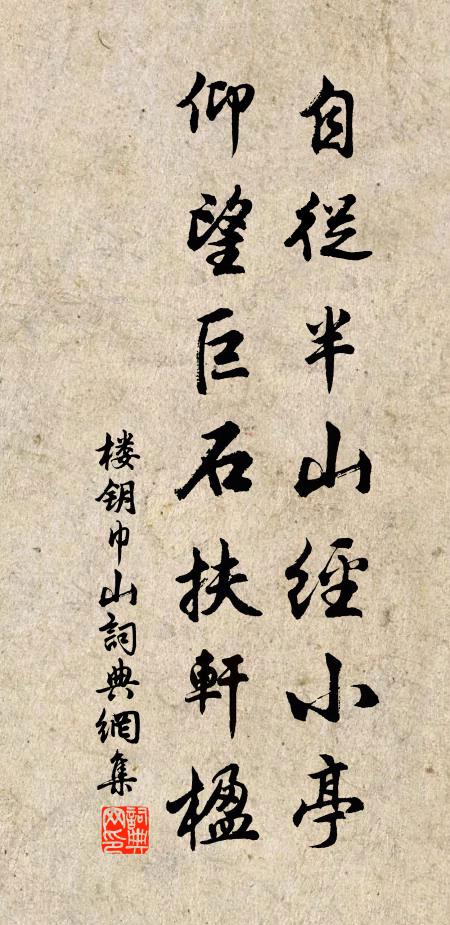 自從半山經小亭
仰望巨石扶軒楹
楼钥巾山詞典網集
詞典网印